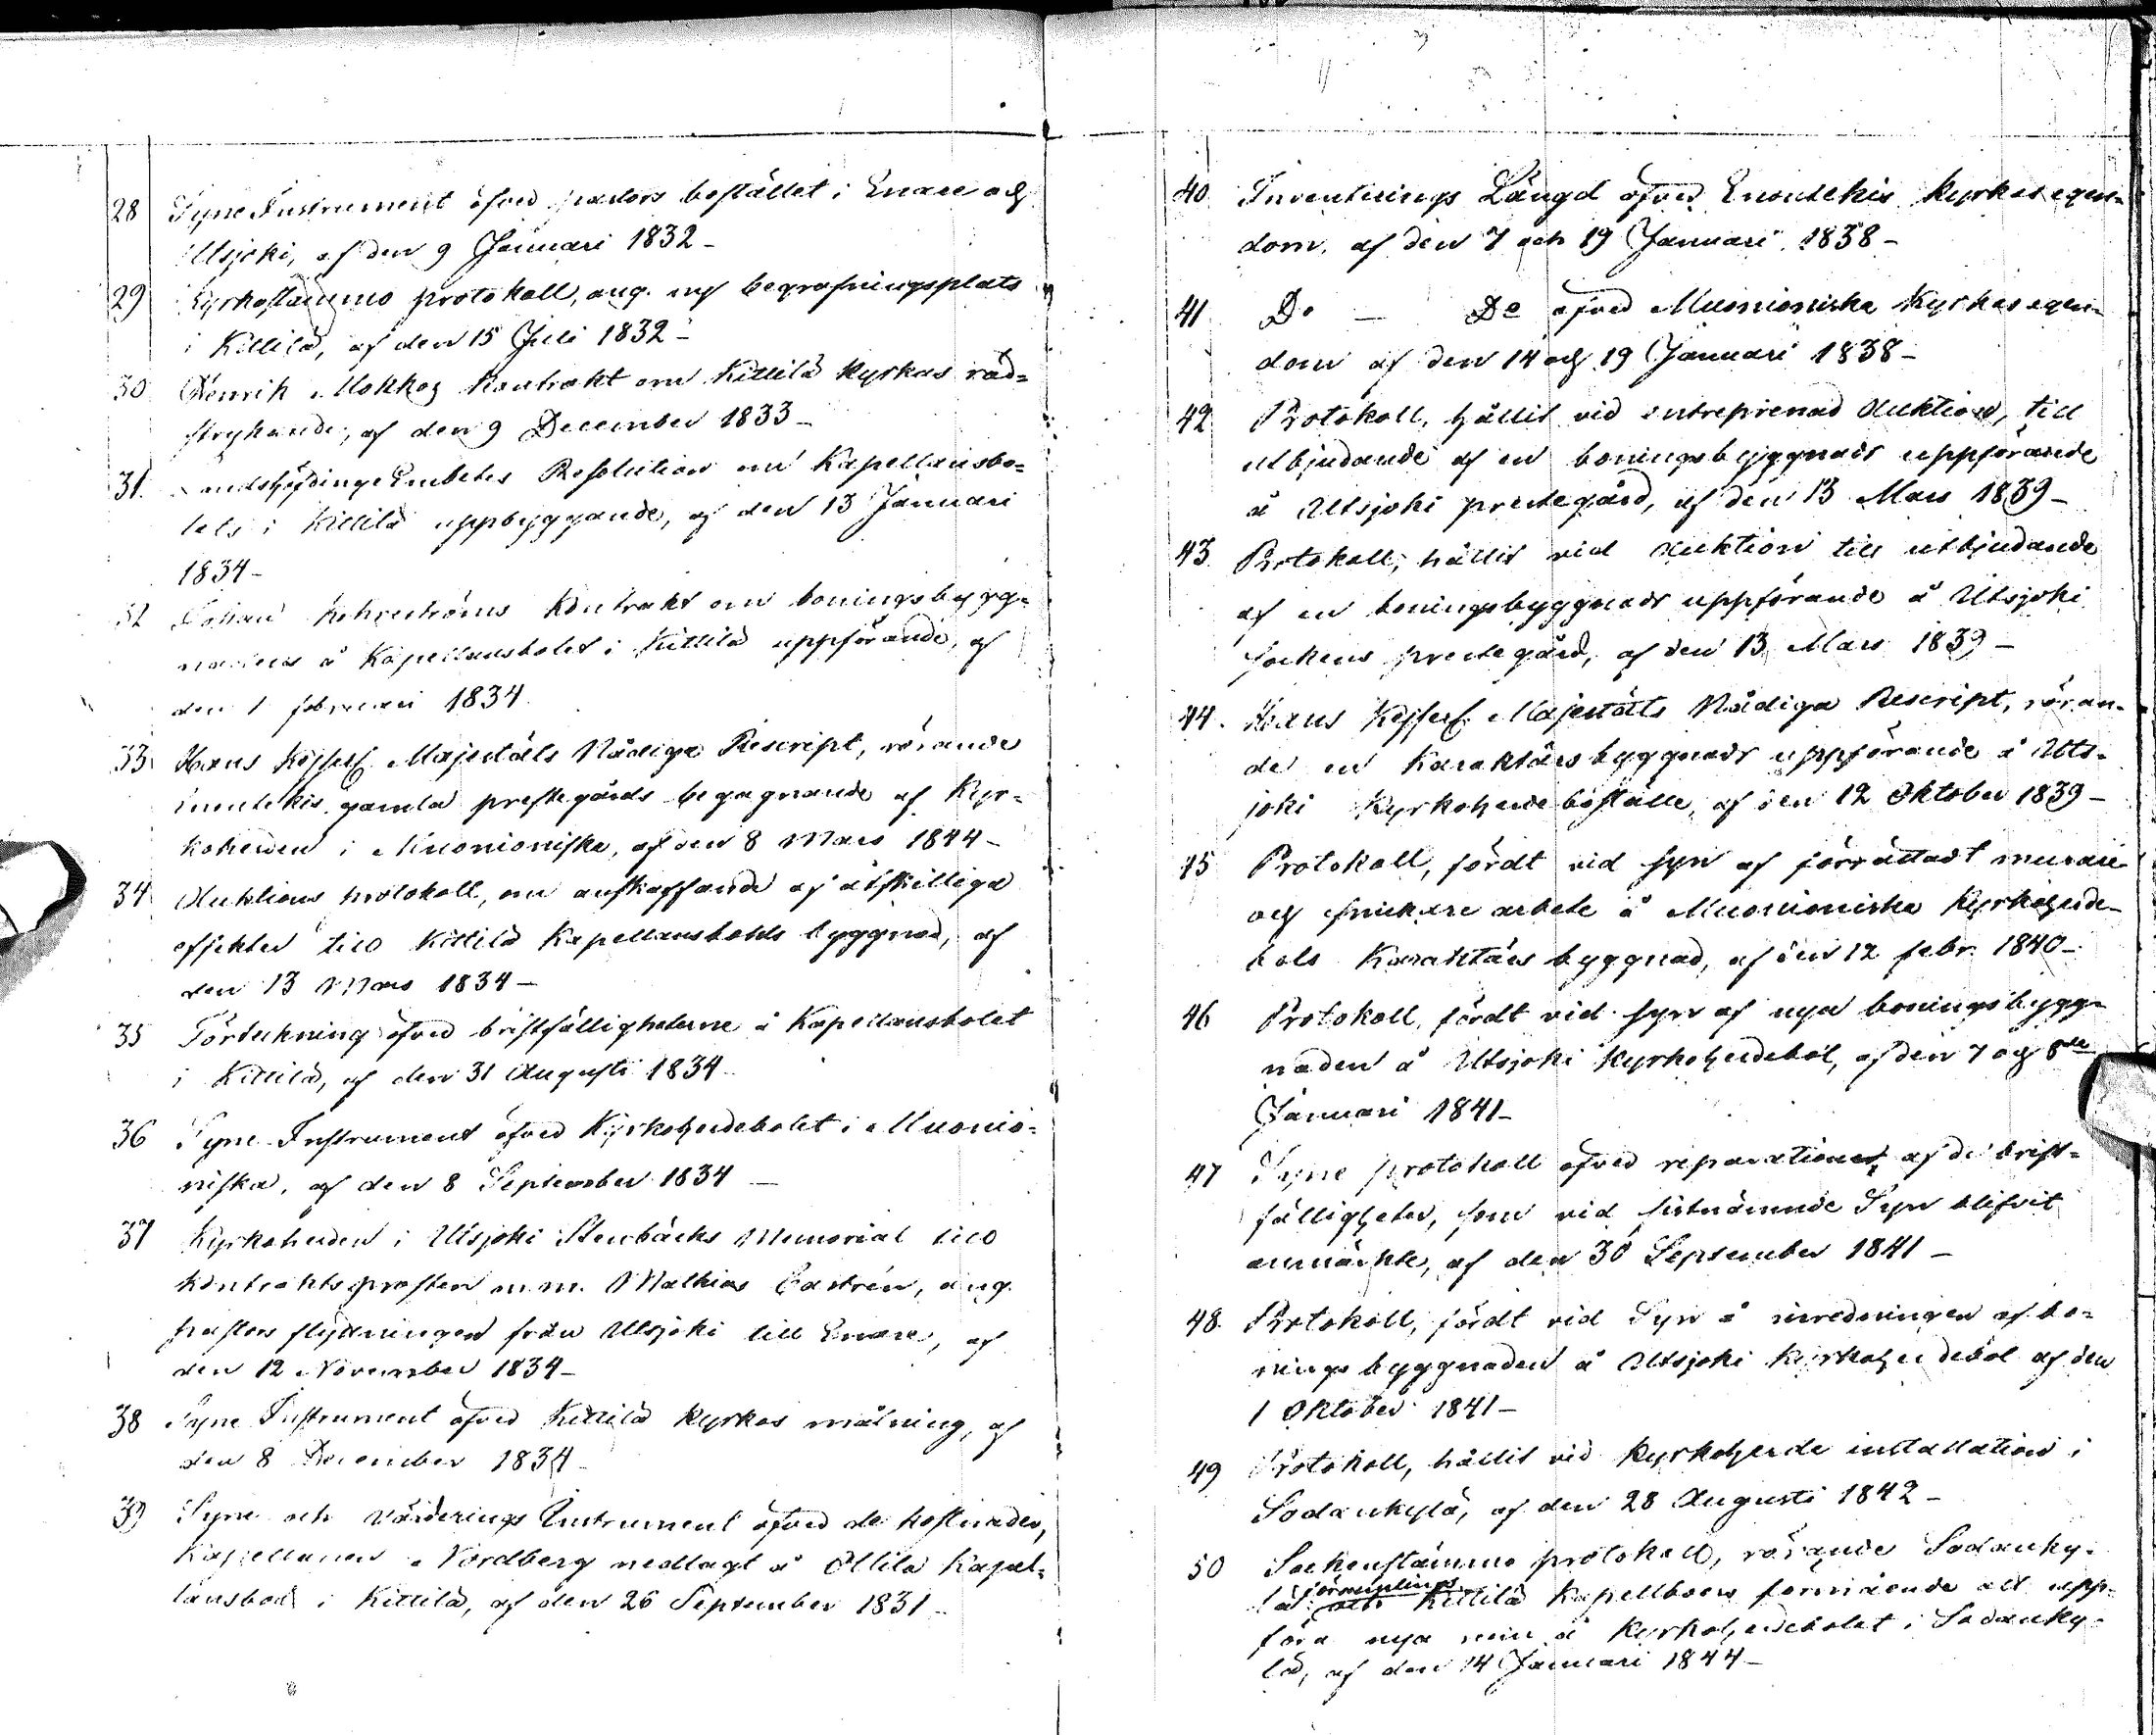 28 Syne Instrument öfver pastors bostället i Enare och
Utsjoki, af den 9 Januari 1832 -
29 Kyrkostämmo protokoll, ang. ny begrafningsplats
i Kittilä, af den 15 Juli 1832 -
30 Henrik Mokkos Kontrakt om Kittilä kyrkas röd=
strykande, af den 9 December 1833 -
31. Landshöfdinge Embetes Resolution om Kapellansbo=
lets i Kittilä uppbyggande, af den 13 Januari
1834 -
32 Johan Kontrakt om boningsbygg=
nadens å Kapellansbolet i Kittilä uppförande, af
den 1 februari 1834.
33 Hans Kejserl. Majestäts Nådiga Rescript, rörande
Enontekis gamla prestegårds begagnande af Kyr=
koherden i Muonioniska, af den 8 Mars 1844 -
34 Auktions protokoll, om anskaffande af åtskilliga
effekter till Kittilä Kapellansbohls byggnad, af
den 13 Mars 1834 -
35 Förtekning öfver bristfälligheterne å Kapellansbolet
i Kittilä, af den 31 Augusti 1834.
36 Syne Instrument öfver Kyrkoherdebolet i Muonio=
niska, af den 8 September 1834 -
37 Kyrkoherden i Utsjoki Stenbäcks Memorial till
Kontraktsprosten m.m. Mathias Castrén, ang.
pastors flyttningen från Utsjoki till Enare, af
den 12 November 1834 -
38 Syne Instrument öfver Kittilä kyrkas målning, af
den 8 December 1834 -
39 Syne och Värderings Instrument öfver de kostnader,
Kapellanen Nordberg nedlagt å Ollila Kapel=
lansbol i Kittilä, af den 26 September 1831 -
40 Inventerings Längd öfver Enontekis kyrkas egen=
dom, af den 7 och 19 Januari 1838 -
41 Do - Do öfver Muonioniska Kyrkas egen=
dom af den 14 och 19 Januari 1838 -
42 Protokoll, hållit vid entreprenad Auktion, till
utbjudande af en boningsbyggnads uppförande
å Utsjoki prestegård, af den 13 Mars 1839 -
43 Protokoll, hållit vid auktion till utbjudande
af en boningsbyggnads uppförande å Utsjoki
Sockens prestegård, af den 13 Mars 1839 -
44. Hans Kejserl. Majestäts Nådiga Rescript, röran=
de en Karaktärsbyggnads uppförande å Uts=
joki Kyrkoherde boställe, af den 12 Oktober 1839 -
45 Protokoll, fördt vid syn af förrättadt murare
och snickare arbete å Muonioniska Kyrkoherde=
bols Karaktärs byggnad, af den 12 febr. 1840 -
46 Protokoll, fördt vid syn af nya boningsbygg=
naden å Utsjoki Kyrkoherdebol, af den 7 och 8de
Januari 1841 -
47 Syne protokoll öfver reparationer af de brist=
fälligheter, som vid sistnämnde Syn blifvit
anmärkte, af den 30 September 1841 -
48. Protokoll, fördt vid Syn å inredningen af bo=
nings byggnaden å Utsjoki Kyrkoherdebol af den
1 Oktober 1841 -
49 Protokoll, hållit vid Kyrkoherde installation i
Sodankylä, af den 28 Augusti 1842 -
50 Sockenstämmo protokoll, rörande Sodanky=
lä förmenlings Kittilä Kapellboers förmående att upp=
föra nya å Kyrkoherdebolet i Sodanky=
lä, af den 14 Januari 1844 -